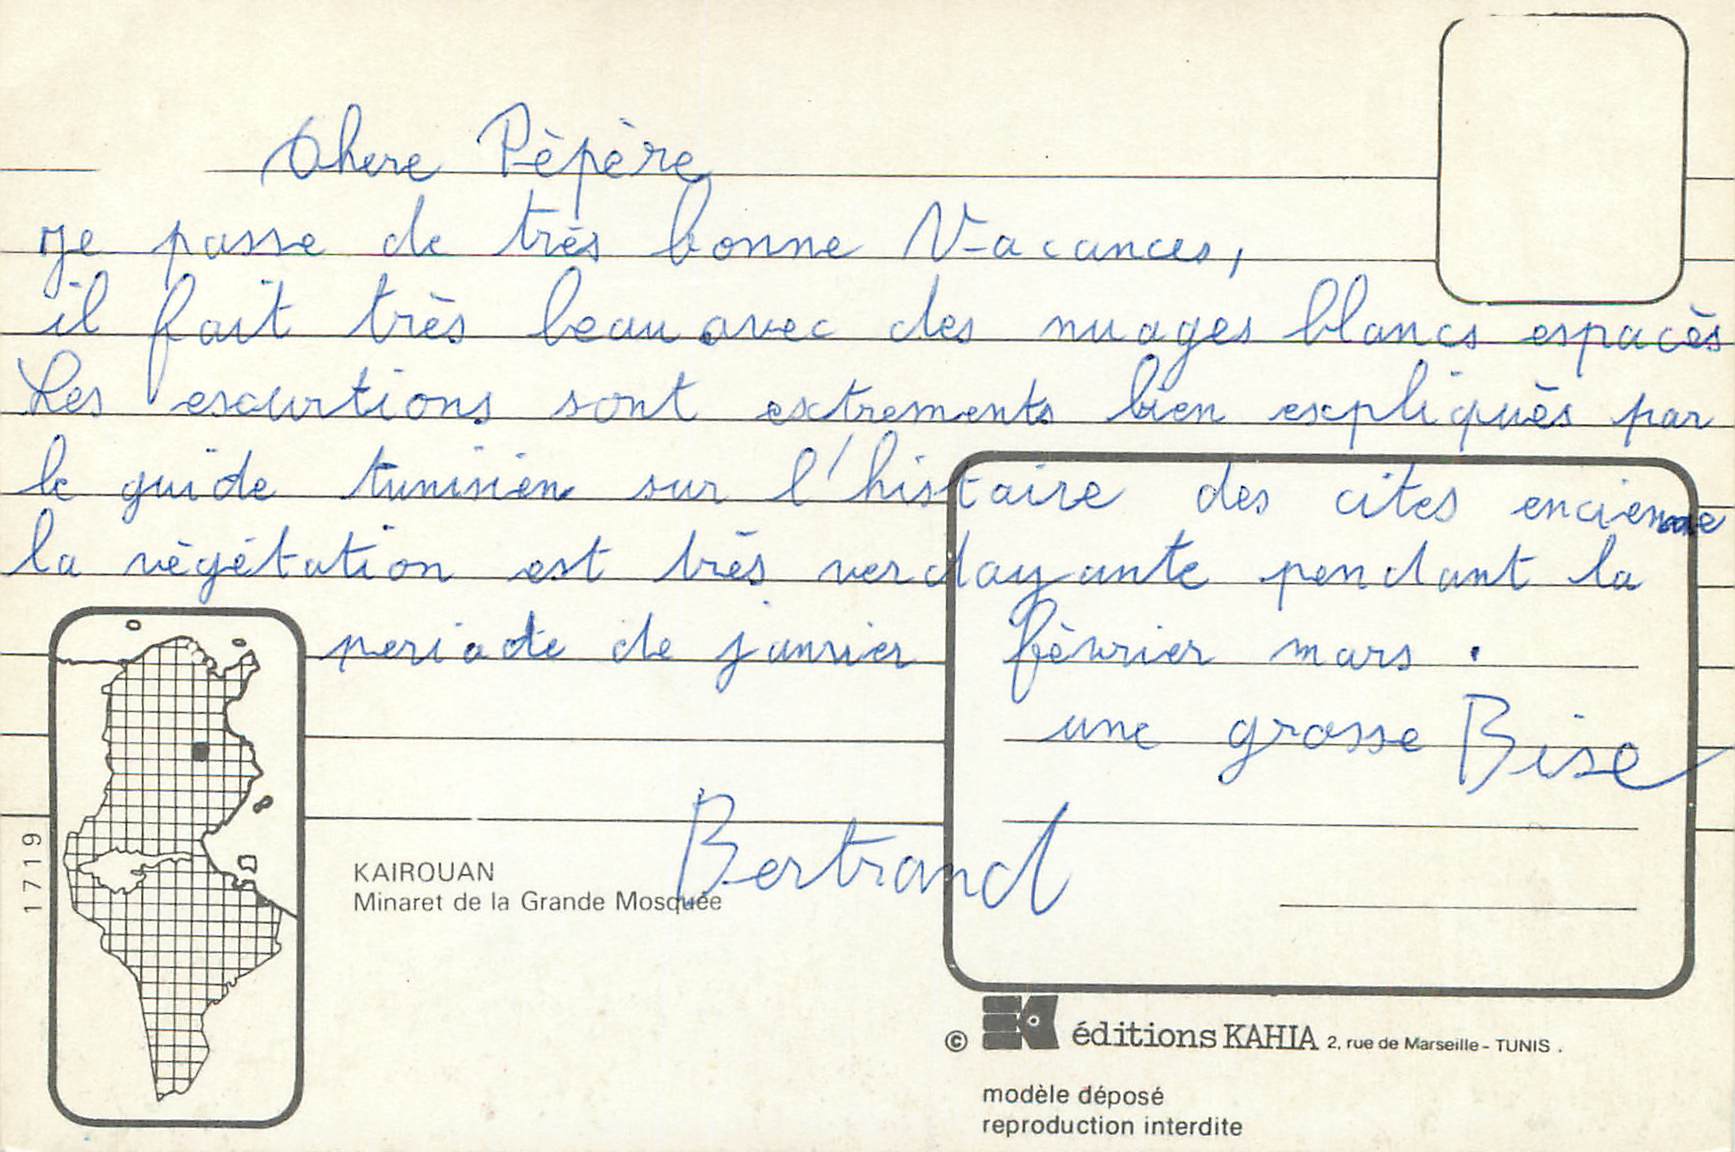 Chere Pèpère
je passe de très bonne Vacances,
il fait très beau avec des nuages blancs espacès
Les escurtions sont extrements bien expliquès par
le guide tunisien sur l'histaire des cites encienne
la vègétation est très verdayante pendant la
periode de janvier fèvrier mars.
une grosse Bise
Bertrand
1719
KAIROUAN
Minaret de la Grande Mosquée
© EK éditions KAHIA 2, rue de Marseille - TUNIS.
modèle déposé
reproduction interdite